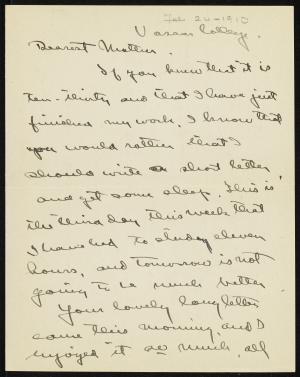 Feb 24-1910
Vassar College.
Dearest Mother.
If you knew that it is
ten-thirty and that I have just
finished my work, I know that
you would rather that I
should write a short letter
and get some sleep. This is
the third day this week that
I have had to study eleven
hours, and tomorrow is not
going to be much better
Your lovely long letter
came this morning and I
enjoyed it so much, all